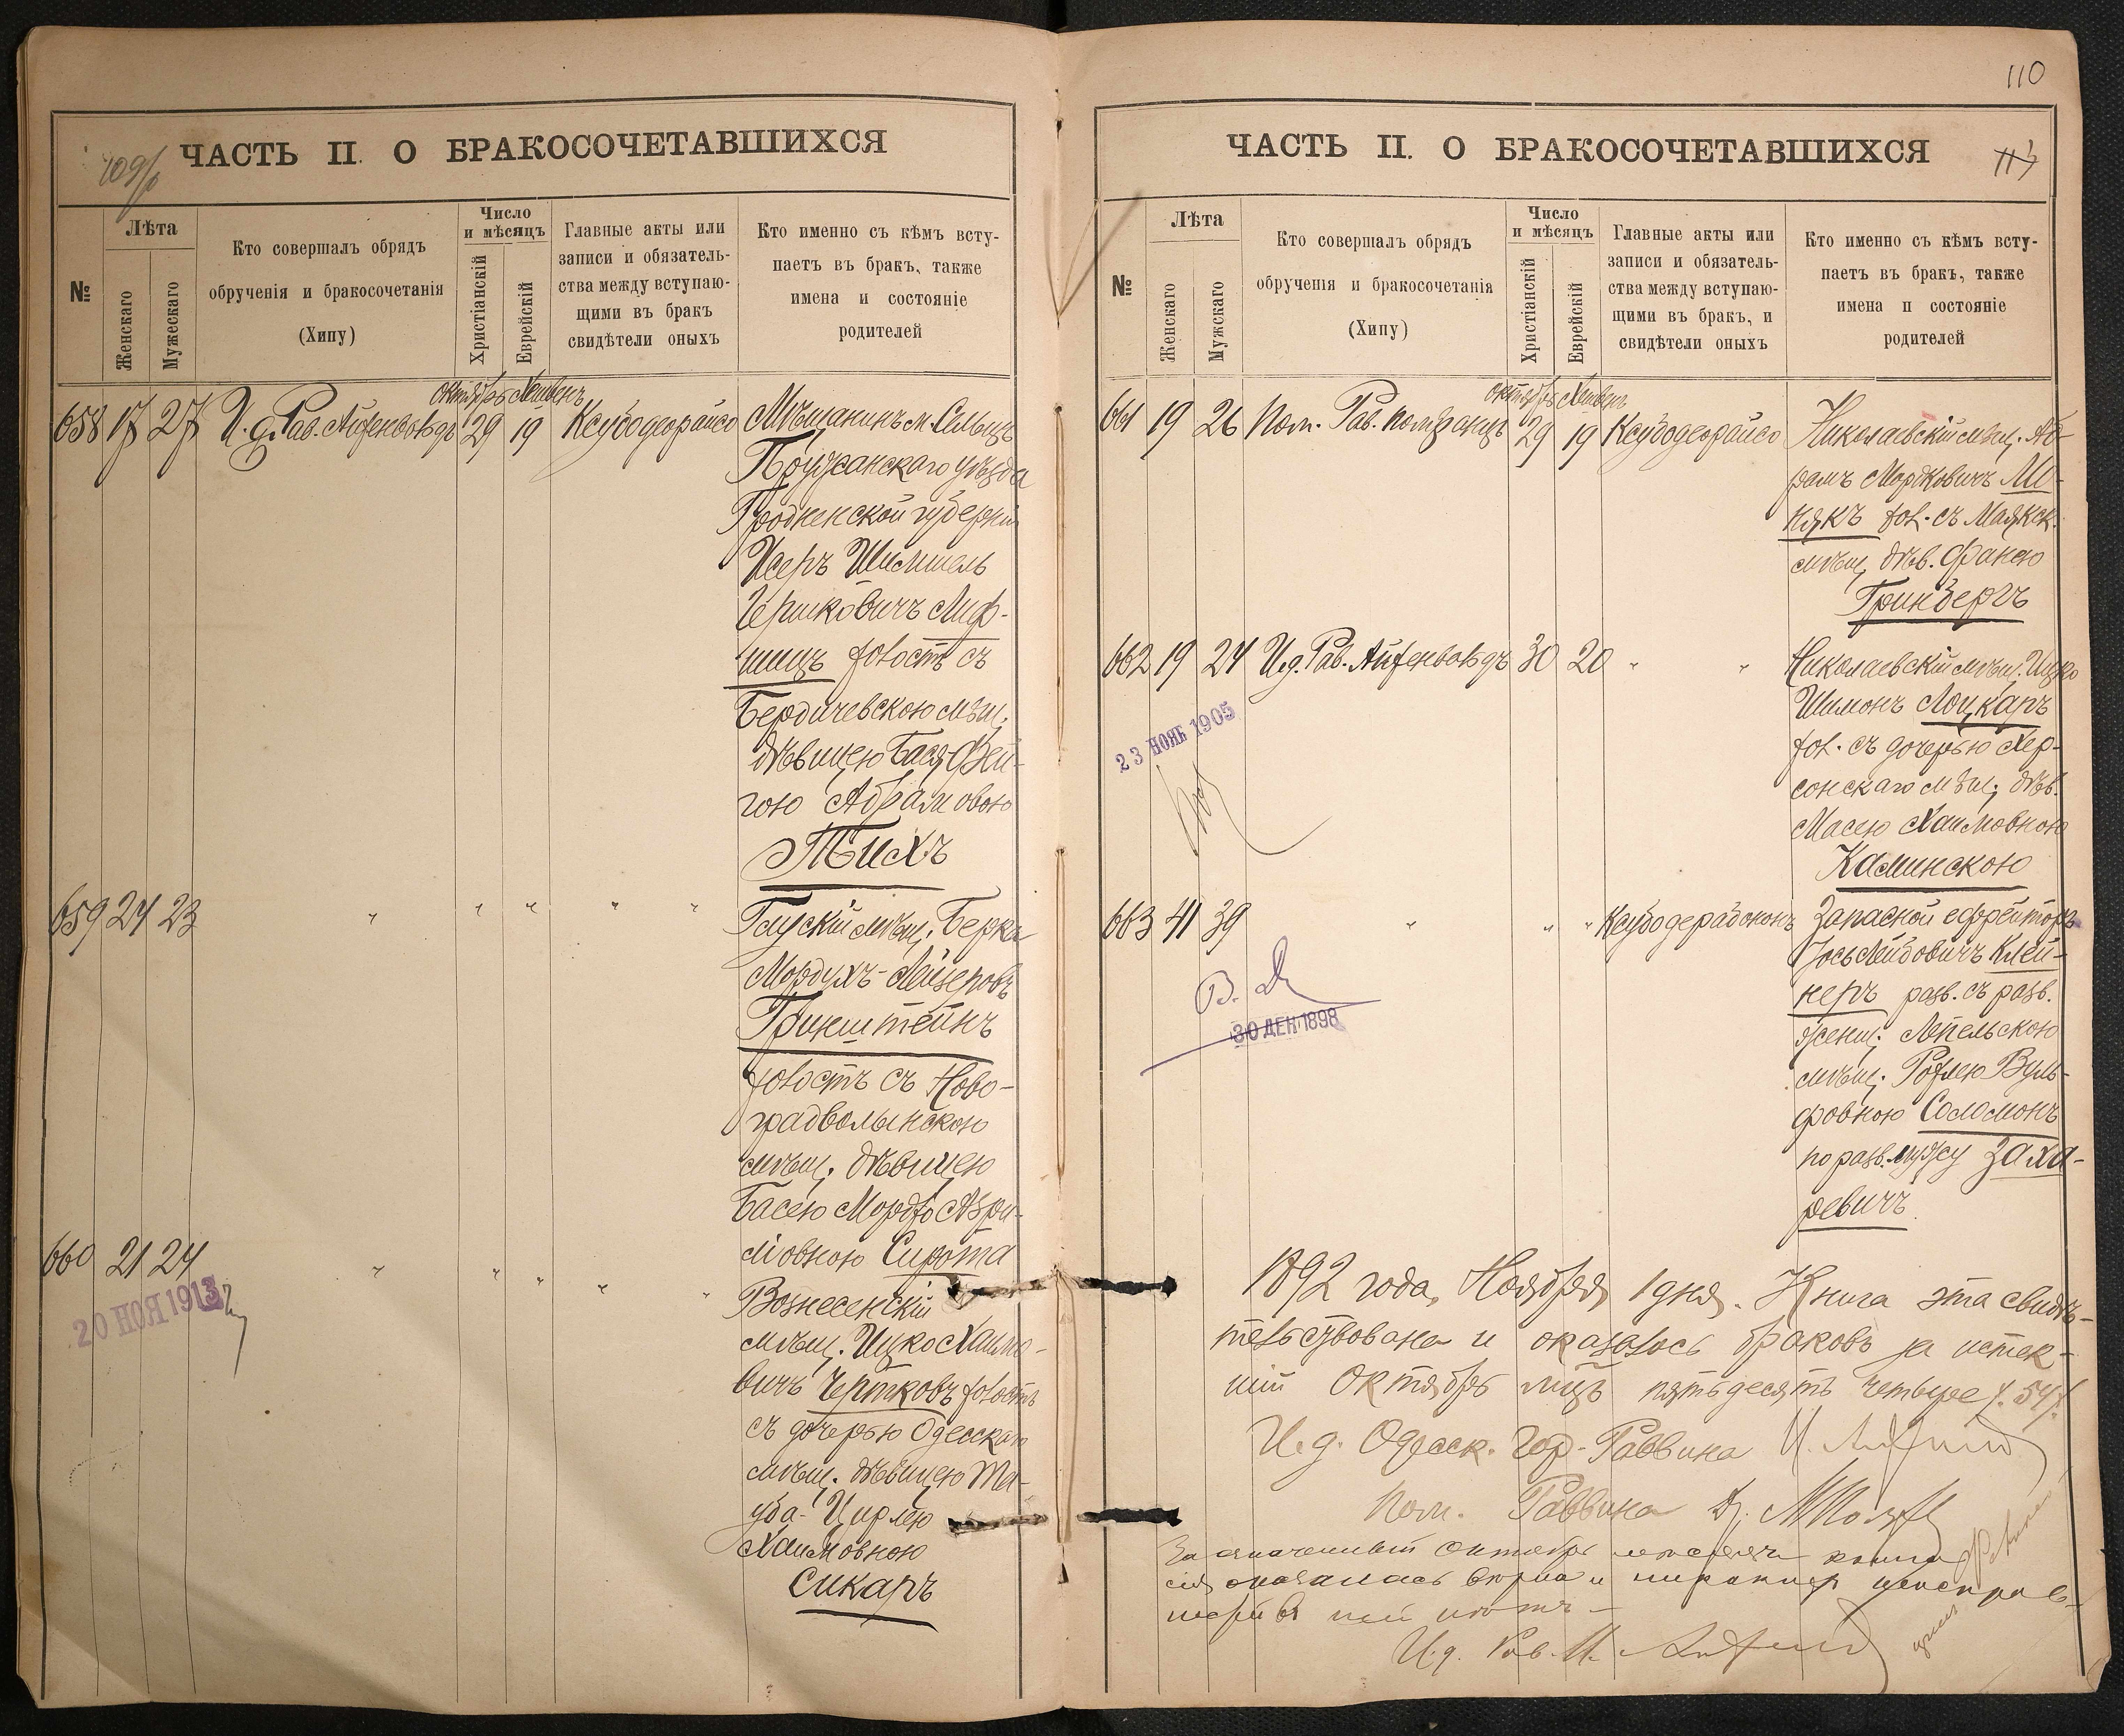 ЧАСТЬ II. О БРАКОСОЧЕТАВШИХСЯ
№
Лѣта
Женскаго
Мужескаго
Кто совершалъ обрядъ
обрученія и бракосочетанія
(Хипу)
Число
и мѣсяцъ
Христіанскій
Еврейскій
Главные акты или
записи и обязатель-
ства между вступаю-
щими въ бракъ
свидѣтели оныхъ
Кто именно съ кѣмъ всту-
паетъ въ бракъ, также
имена и состояніе
родителей
октябрь Хешвенъ
658 17 27 И. д. Рав. Айзенвольдъ 29 19 Ксубодеорайсо Мѣщанинъ м. Сельцъ
Пружанскаго уѣзда
Гродненской губерніи
Исеръ Шимшель
Гершковичъ Лиф-
шицъ холостъ съ
Бердичевскою мѣщ.
дѣвицею Бася-Фей-
гою Абрамовою
Тихъ
659 24 23 " " " " " Глускій мѣщ. Берка
Мордухъ-Лейзеровъ
Гринштейнъ
холостъ съ Ново-
градволынскою
мѣщ. дѣвицею
Басею Мордко Аври-
мовною Сирота
660 21 24 " " " " " Вознесенскій
20 НОЯ 1913
мѣщ. Ицко Хаимо-
вичъ Чертковъ холостъ
съ дочерью Одесскаго
мѣщ. дѣвицею Та-
уба-Цирлею
Хаимовною
Сикаръ
110
ЧАСТЬ II. О БРАКОСОЧЕТАВШИХСЯ
№
Лѣта
Женскаго
Мужскаго
Кто совершалъ обрядъ
обрученія и бракосочетанія
(Хипу)
Число
и мѣсяцъ
Христіанскій
Еврейскій
Главные акты или
записи и обязатель-
ства между вступаю-
щими въ бракъ, и
свидѣтели оныхъ
Кто именно съ кѣмъ всту-
паетъ въ бракъ, также
имена и состояніе
родителей
октябрь Хешвенъ
661 19 26 Пом. Рав. 29 19 Ксубодеорайсо Николаевскій мѣщ. Аб-
рамъ Мордковичъ Ми-
някъ хол. съ Маякск.
мѣщ. дѣв. Фанею
Гринбергъ
662 19 24 И.д. Рав. Айзенвольдъ 30 20 " " Николаевскій мѣщ. Ицко
Шимонъ Лоцкаръ
хол. съ дочерью Хер-
23 НОЯБ 1905
сонскаго мѣщ. дѣв.
Масею Хаимовною
Каминскою
663 41 39 " " " Ксубодерабононъ Запасной ефрейторъ
Іось Лейбовичъ Клей-
неръ разв. съ разв.
В.
30 ДЕК 1898
женщ. Лепельскою
мѣщ. Рохлею Вуль-
фовною Соломонъ
по разв. мужу Заха-
ревичъ
1892 года, Ноября 1 дня. Книга эта свидѣ-
тельствована и оказалось браковъ за истек-
шій Октябрь мѣцъ пятьдесятъ четыре /54/.
И.д. Одесск. Гор. Раввина
Пом. Раввина
За означенный октябрь мѣсяцъ книга
сія оказалась вѣрна и
ней нѣтъ
И.д. Рав.